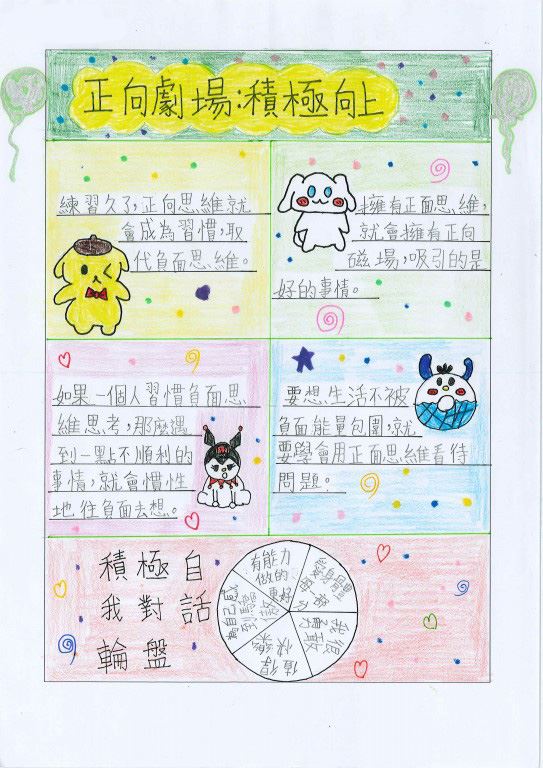 正向劇場:積極向上
練習久了,正向思維就
會成為習慣,取
代負面思維。
擁有正面思維,
就會擁有正向
磁場,吸引的是
好的事情。
如果一個人習慣負面思
維思考,那麼遇
到一點不順利的
事情,就會慣性
地往負面去想。
要想生活不被
負面能量包圍,就
要學會用正面思維看待
問題。
積極自
我對話
輪盤
有能力
做的
更好
我很
勇敢
值得
快樂